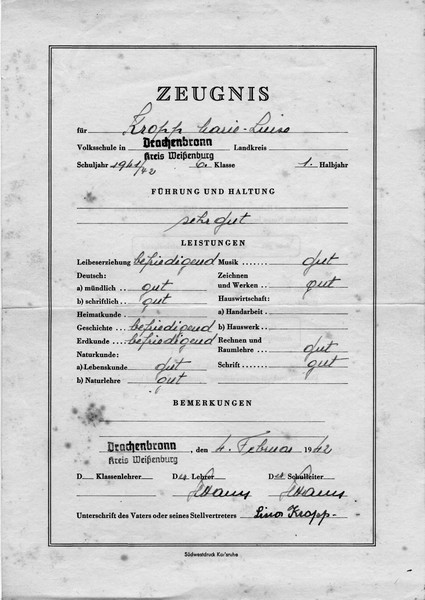 ZEUGNIS
für Kropp Marie-Luise
Volksschule in Drachenbronn Kreis Weißenburg Landkreis
Schuljahr 1941/42 6. Klasse 1. Halbjahr
FÜHRUNG UND HALTUNG
sehr gut
LEISTUNGEN
Leibeserziehung befriedigend Musik ....... gut
Deutsch: Zeichnen
a) mündlich . gut und Werken .. gut
b) schriftlich . gut Hauswirtschaft:
Heimatkunde . a) Handarbeit .
Geschichte ... befriedigend b) Hauswerk .
Erdkunde ... befriedigend Rechnen und
Naturkunde: Raumlehre ... gut
a) Lebenskunde gut Schrift ....... gut
b) Naturlehre gut
BEMERKUNGEN
Drachenbronn Kreis Weißenburg , den 4. Februar 1942
D Klassenlehrer D er Lehrer D er Schulleiter
Unterschrift des Vaters oder seines Stellvertreters Kropp
Südwestdruck Karlsruhe